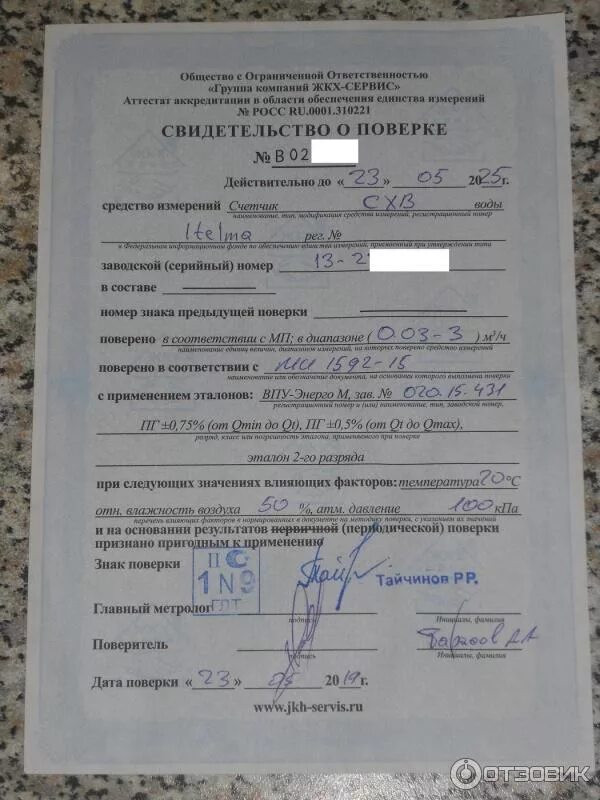 Общество с Ограниченной Ответственностью
«Группа компаний ЖКХ-СЕРВИС»
Аттестат аккредитации в области обеспечения единства измерений
№ РОСС RU.0001.310221
СВИДЕТЕЛЬСТВО О ПОВЕРКЕ
№ В 02
Действительно до « 23 » 05 2025г.
средство измерений Счетчик СХВ воды
наименование, тип, модификация средства измерений, регистрационный номер
Itelma рег. №
в Федеральном информационном фонде по обеспечению единства измерений, присвоенный при утверждении типа
заводской (серийный) номер 13-2
в составе
номер знака предыдущей поверки
поверено в соответствии с МП; в диапазоне ( 0.03-3 ) м³/ч
наименование единиц величин, диапазонов измерений, на которых поверено средство измерений
поверено в соответствии с МИ 1592-15
наименование или обозначение документа, на основании которого выполнена поверка
с применением эталонов: ВПУ-Энерго М, зав. № 020.15.431
регистрационный номер и (или) наименование, тип, заводской номер,
ПГ ±0,75% (от Qmin до Qt), ПГ ±0,5% (от Qt до Qmax),
разряд, класс или погрешность эталона, применяемого при поверке
эталон 2-го разряда
при следующих значениях влияющих факторов: температура 20 °С
отн. влажность воздуха 50 %, атм. давление 100 кПа
перечень влияющих факторов в нормированных в документе на методику поверки, с указанием их значений
и на основании результатов первичной (периодической) поверки
признано пригодным к применению
Знак поверки
П С
1 N 9
ГЛТ
Тайчинов РР.
Главный метролог
подпись
Инициалы, фамилия
Поверитель
подпись
Инициалы, фамилия
Дата поверки « 23 » 05 2019г.
www.jkh-servis.ru
ОТЗОВИК